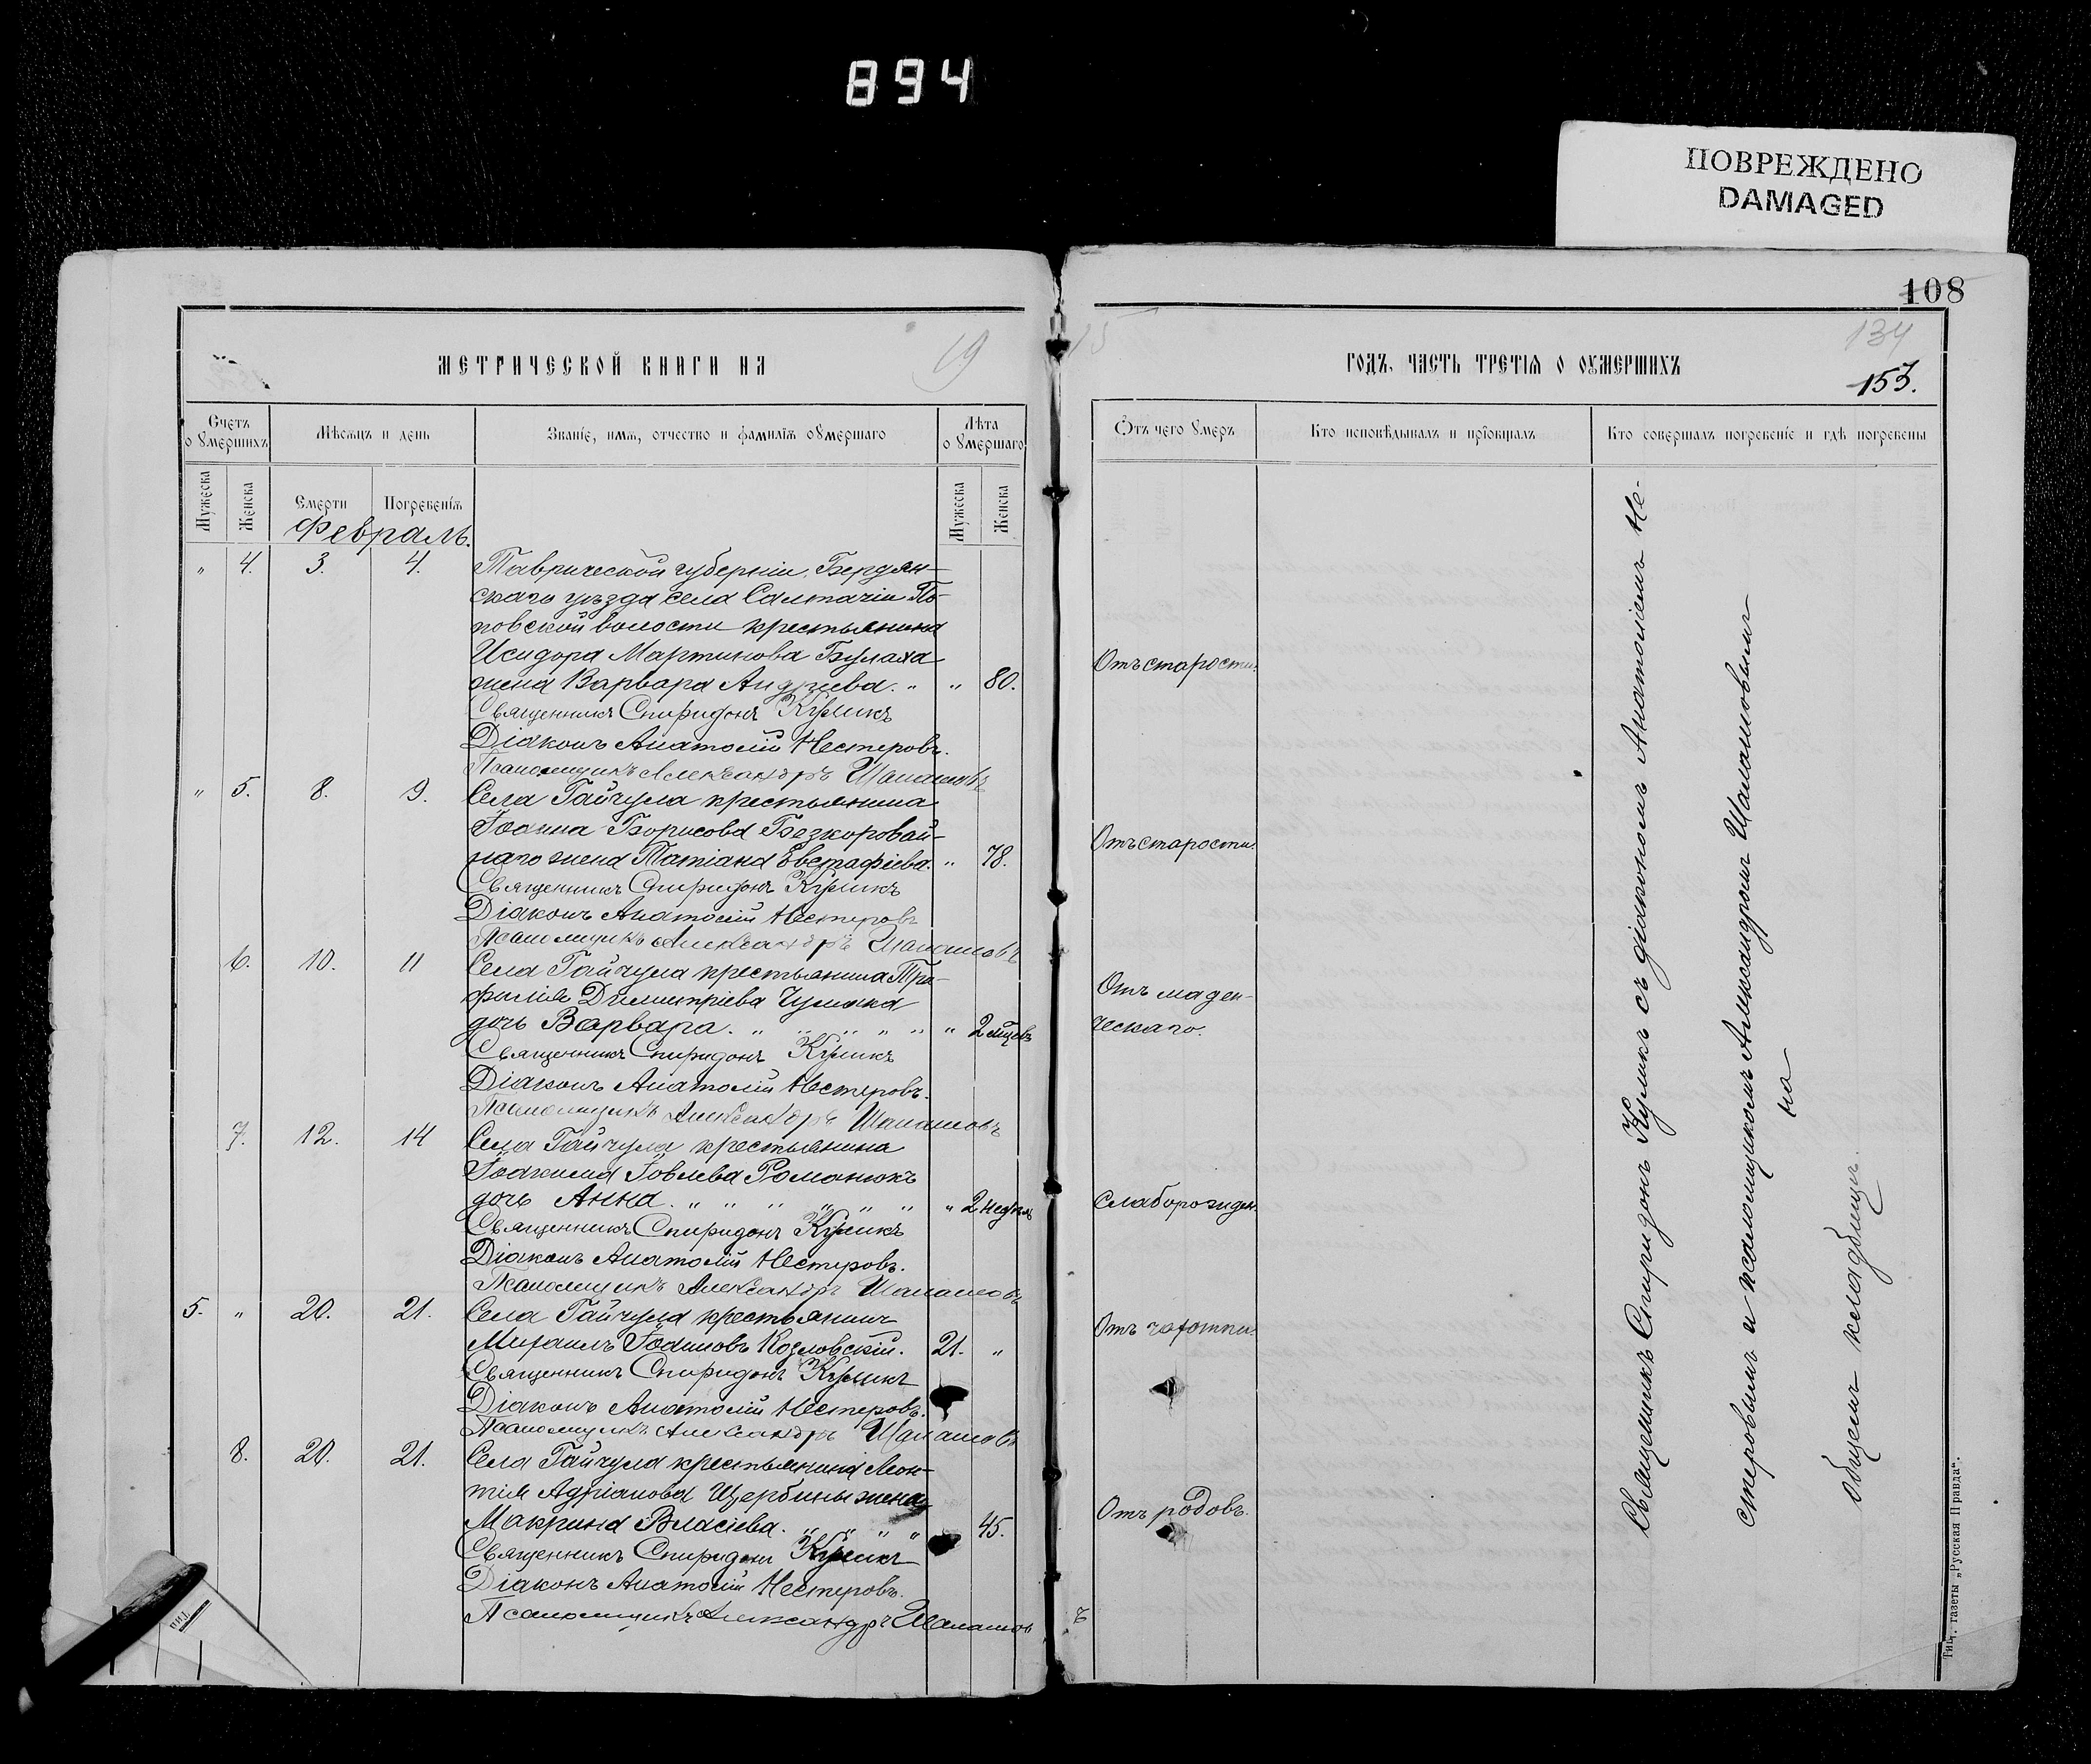 894
ПОВРЕЖДЕНО
DAMAGED
108
МЕТРИЧЕСКОЙ КНИГИ НА 19
15 ГОДЪ, ЧАСТЬ ТРЕТІѦ О ОУМЕРШИХЪ
134
153.
Счетъ о Умершихъ
Мѣсяцъ и день
Званіе, имѧ, отчество и фамиліѧ оУмершаго
Лѣта о Умершаго
Отъ чего Умеръ
Кто исповѣдывалъ и пріобщалъ
Кто совершалъ погребеніе и гдѣ погребены
Мужеска
Женска
Смерти
Погребеніѧ
Мужеска
Женска
Февраль.
" 4. 3. 4. Таврической губерніи, Бердян-
скаго уѣзда села Салтачіи По-
повской волости крестьянина
Исидора Мартинова Булаха
жена Варвара Андреева. " " 80. Отъ старости.
Священникъ Спиридонъ Куликъ
Діаконъ Анатолій Нестеровъ.
Псаломщикъ Александръ Шаламовъ
" 5. 8. 9. Села Гайчула крестьянина
Іоанна Борисова Безкоровай-
наго жена Татіана Евстафіева. " 78. Отъ старости.
Священникъ Спиридонъ Куликъ
Діаконъ Анатолій Нестеровъ
Псаломщикъ Александръ Шаламовъ
6. 10. 11 Села Гайчула крестьянина Тро-
филія Димитріева Чумака
дочь Варвара. " " " " " " 2 мѣцев Отъ маден-
ческаго.
Священникъ Спиридонъ Куликъ
Діаконъ Анатолій Нестеровъ.
Псаломщикъ Александръ Шаламовъ
7. 12. 14 Села Гайчула крестьянина
Іоакима Іовлева Романюкъ
дочь Анна. " " " " " " " 2 недѣль Слаборожден.
Священникъ Спиридонъ Куликъ
Діаконъ Анатолій Нестеровъ.
Псаломщикъ Александръ Шаламовъ
5. " 20. 21. Села Гайчула крестьянинъ
Михаилъ Іоанновъ Козловскій. 21. " Отъ чахотки.
Священникъ Спиридонъ Куликъ
Діаконъ Анатолій Нестеровъ.
Псаломщикъ Александръ Шаламовъ
8. 20. 21. Села Гайчула крестьянина Леон-
тія Адріанова Щербины жена
Макрина Власіева. " " " " 45. Отъ родовъ.
Священникъ Спиридонъ Куликъ
Діаконъ Анатолій Нестеровъ.
Псаломщикъ Александръ Шаламовъ
Священникъ Спиридонъ Куликъ съ діакономъ Анатоліемъ Не-
стеровымъ и псаломщикомъ Александромъ Шаламовымъ
на
общемъ кладбищѣ.
Тип. газеты „Русская Правда“.